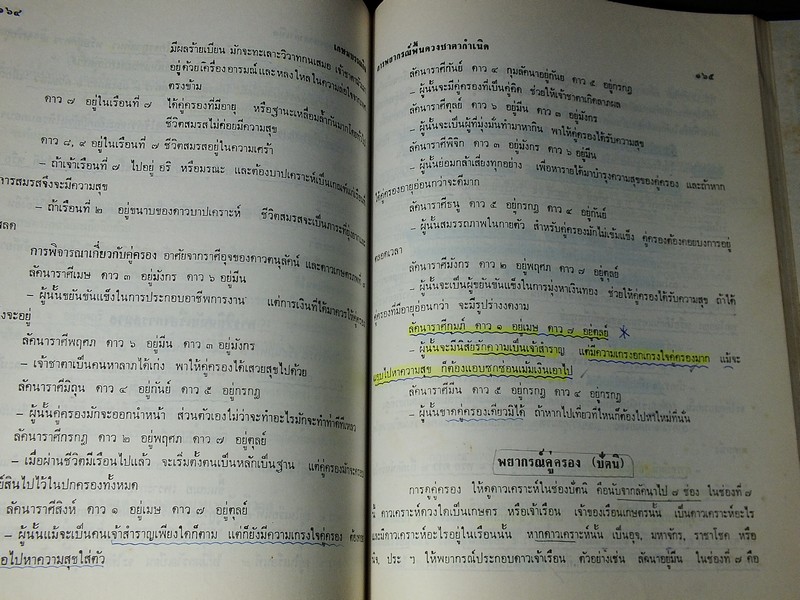 ๑๖๔
เกษมบรรณกิจ
มีผลร้ายเบียน มักจะทะเลาะวิวาทกันเสมอ เจ้าชาตา
อยู่ด้วยเครื่องอารมณ์และหลงใหลในความ
ตรงข้าม
ดาว ๗ อยู่ในเรือนที่ ๗ ได้คู่ครองที่มีอายุ หรือฐานะเหลื่อมล้ำกันมาก
ชีวิตสมรสไม่ค่อยมีความสุข
ดาว ๘, ๙ อยู่ในเรือนที่ ๗ ชีวิตสมรสอยู่ในความเศร้า
– ถ้าเจ้าเรือนที่ ๗ ไปอยู่ อริ หรือมรณะ และต้องบาปเคราะห์เป็นเกณฑ์
การสมรสจึงจะมีความสุข
– ถ้าเรือนที่ ๒ อยู่ขนาบของดาวบาปเคราะห์ ชีวิตสมรสจะเป็นภาระที่ยุ่งยาก
การพิจารณาเกี่ยวกับคู่ครอง อาศัยจากราศีอุจของดาวตนุลัคน์ และดาวเกษตรภพที่ ๑
ลัคนาราศีเมษ ดาว ๓ อยู่มังกร ดาว ๖ อยู่มีน
– ผู้นั้นขยันขันแข็งในการประกอบอาชีพการงาน แต่การเงินที่ได้มาควรให้
งจะอยู่
ลัคนาราศีพฤศภ ดาว ๖ อยู่มีน ดาว ๓ อยู่มังกร
– เจ้าชาตาเป็นคนหาลาภได้เก่ง พาให้คู่ครองได้เสวยสุขไปด้วย
ลัคนาราศีมิถุน ดาว ๔ อยู่กันย์ ดาว ๕ อยู่กรกฎ
– ผู้นั้นคู่ครองมักจะออกนำหน้า ส่วนตัวเองไม่ว่าจะทำอะไรมักจะทำท่าดีทีเหลว
ลัคนาราศีกรกฎ ดาว ๒ อยู่พฤศภ ดาว ๗ อยู่ตุลย์
– เมื่อผ่านชีวิตมีเรือนไปแล้ว จะเริ่มตั้งตนเป็นหลักเป็นฐาน แต่คู่ครองมัก
ย์สินไปไว้ในปกครองทั้งหมด
ลัคนาราศีสิงห์ ดาว ๑ อยู่เมษ ดาว ๗ อยู่ตุลย์
– ผู้นั้นแม้จะเป็นคนเจ้าสำราญเพียงใดก็ตาม แต่ก็ยังมีความเกรงใจคู่ครอง
อไปหาความสุขใส่ตัว
การพยากรณ์พื้นดวงชาตากำเนิด
๑๖๕
ลัคนาราศีกันย์ ดาว ๔ กุมลัคนาอยู่กันย์ ดาว ๕ อยู่กรกฎ
– ผู้นั้นจะมีคู่ครองที่เป็นคู่คิด ช่วยให้เจ้าชาตาเกิดลาภผล
ลัคนาราศีตุลย์ ดาว ๖ อยู่มีน ดาว ๓ อยู่มังกร
– ผู้นั้นจะเป็นผู้ที่มุ่งมั่นทำมาหากิน พาให้คู่ครองได้รับความสุข
ลัคนาราศีพิจิก ดาว ๓ อยู่มังกร ดาว ๖ อยู่มีน
– ผู้นั้นย่อมกล้าเสี่ยงทุกอย่าง เพื่อหารายได้มาบำรุงความสุขของคู่ครอง และถ้าหาก
ได้คู่ครองอายุอ่อนกว่าจะดีมาก
ลัคนาราศีธนู ดาว ๕ อยู่กรกฎ ดาว ๔ อยู่กันย์
– ผู้นั้นสมรรถภาพในกายตัว สำหรับคู่ครองมักไม่เข้มแข็ง คู่ครองต้องคอยบงการอยู่
ตลอดเวลา
ลัคนาราศีมังกร ดาว ๒ อยู่พฤศภ ดาว ๗ อยู่ตุลย์
– ผู้นั้นจะเป็นผู้ขยันขันแข็งในการมุ่งหาเงินทอง ช่วยให้คู่ครองได้รับความสุข ถ้าได้
คู่ครองที่มีอายุอ่อนกว่า จะมีรูปร่างงดงาม
ลัคนาราศีกุมภ์ ดาว ๑ อยู่เมษ ดาว ๗ อยู่ตุลย์
– ผู้นั้นจะมีนิสัยรักความเป็นเจ้าสำราญ แต่มีความเกรงอกเกรงใจคู่ครองมาก แม้จะ
แอบไปหาความสุข ก็ต้องแอบซุกซ่อนเม้มเงินเอาไป
ลัคนาราศีมีน ดาว ๕ อยู่กรกฎ ดาว ๔ อยู่กรกฎ
– ผู้นั้นขาดคู่ครองเคียงมิได้ ถ้าหากไปเที่ยวที่ไหนก็ต้องไปหาใหม่ที่นั่น
พยากรณ์คู่ครอง (ปัตนิ)
การดูคู่ครอง ให้ดูดาวเคราะห์ในช่องปัตนิ คือนับจากลัคนาไป ๗ ช่อง ในช่องที่ ๗
นี้ ดาวเคราะห์ดวงใดเป็นเกษตร หรือเจ้าเรือน เจ้าของเรือนเกษตรนั้น เป็นดาวเคราะห์อะไร
และมีดาวเคราะห์อะไรอยู่ในเรือนนั้น หากดาวเคราะห์นั้น เป็นอุจ, มหาจักร, ราชาโชค หรือ
นิจ, ประ ฯ ให้พยากรณ์ประกอบดาวเจ้าเรือน ตัวอย่างเช่น ลัคนาอยู่มีน ในช่องที่ ๗ คือ